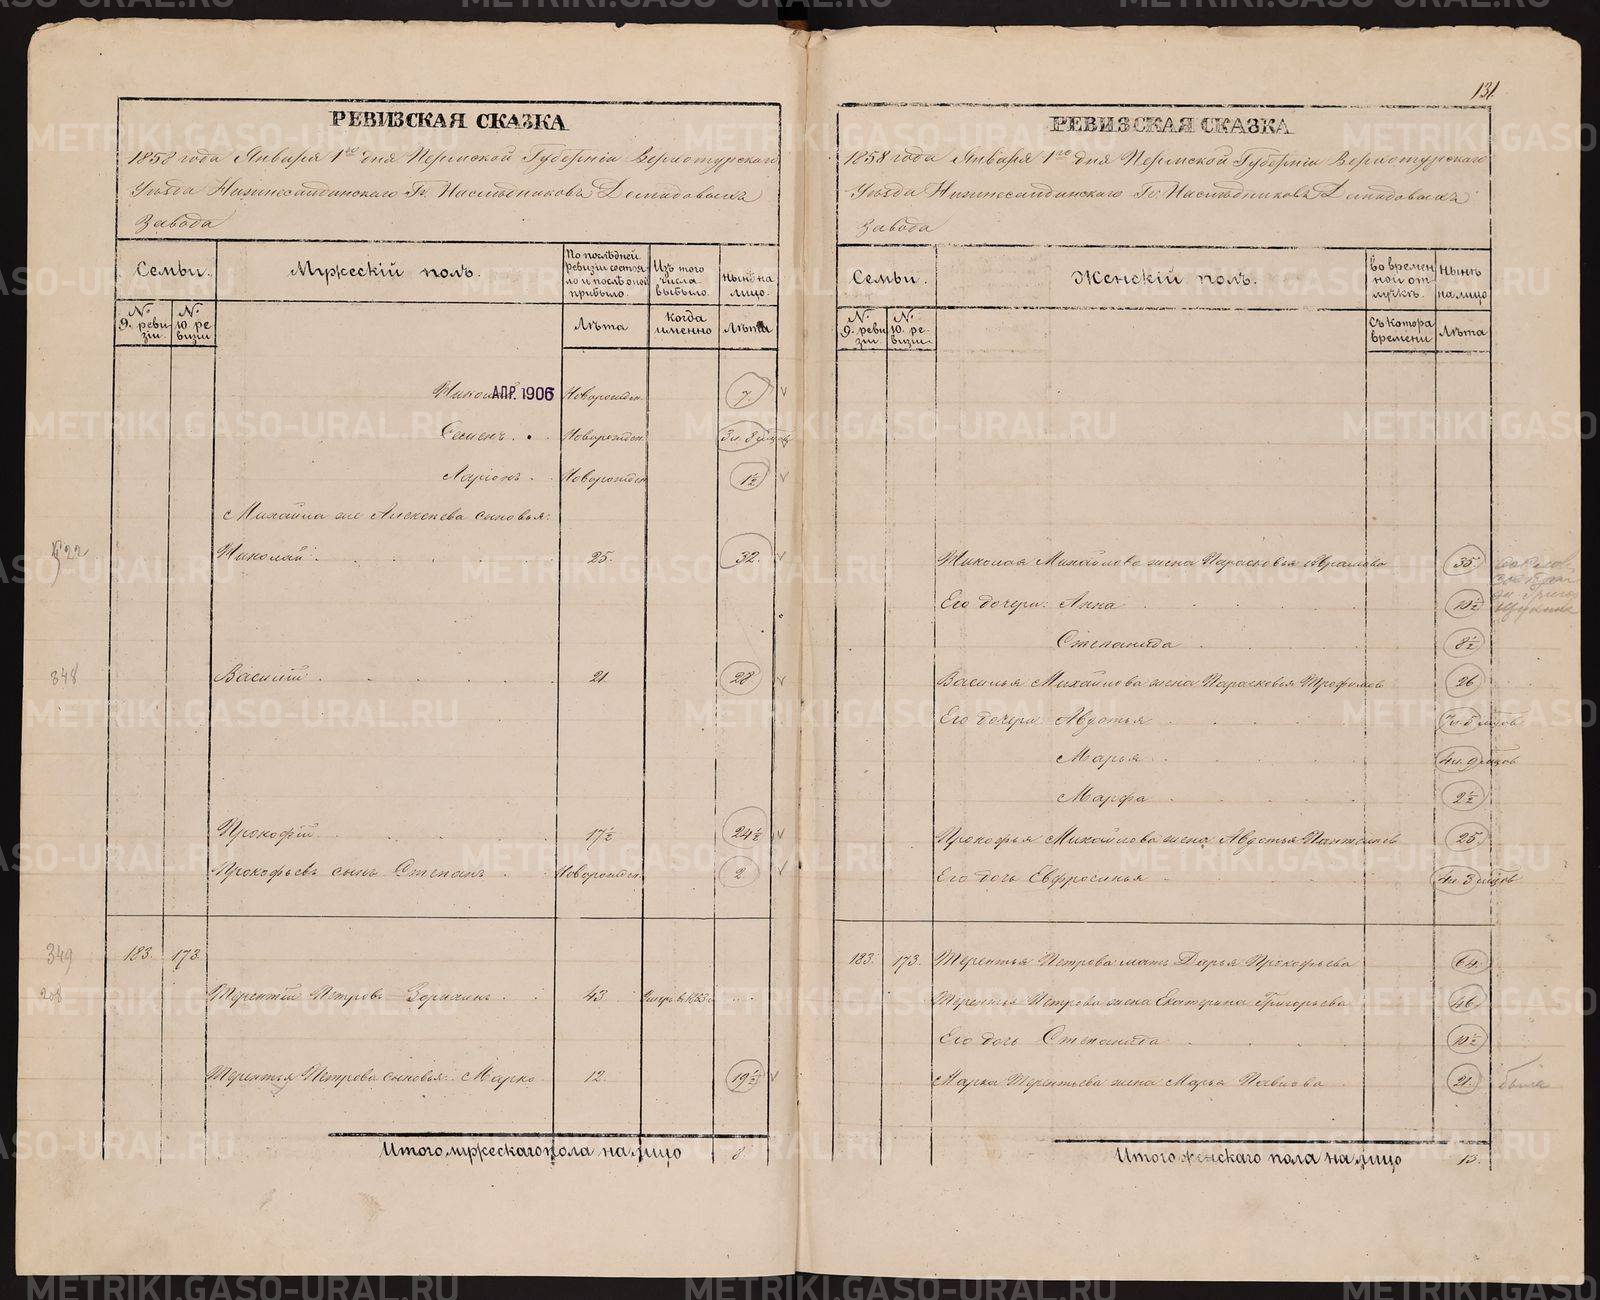 131
РЕВИЗСКАЯ СКАЗКА
1858 года Января 1го дня Пермской Губерніи Верхотурскаго
Уѣзда Нижнесалдинскаго Гг. Наслѣдниковъ Демидовыхъ
Завода
Семьи.
Мужескій полъ.
По послѣдней ревизіи состояло и послѣ оной прибыло.
Изъ того числа выбыло.
Нынѣ на лицо.
№ 9. ревизіи.
№ 10. ревизіи
Лѣта
Когда именно
Лѣта
АПР. 1906 Новорожден. 7.
Семенъ. Новорожден. 3 и 8 мцов
Ларіонъ Новорожден. 1½
Михайла же Алексѣева сыновья:
Николай 25. 32.
348 Василій 21 28
Прокофій 17½ 24½
Прокофьевъ сынъ Степанъ Новорожден. 2
349 183. 173.
208 Терентій Петровъ Зорихинъ 43 1853
Терентья Петрова сыновья: Марко 12. 19½
Итого мужескаго пола на лицо 8
РЕВИЗСКАЯ СКАЗКА
1858 года Января 1го дня Пермской Губерніи Верхотурскаго
Уѣзда Нижнесалдинскаго Гг. Наслѣдниковъ Демидовыхъ
Завода
Семьи.
Женскій полъ.
Во временной отлучкѣ.
Нынѣ на лицо
№ 9. ревизіи.
№ 10. ревизіи.
Съ котора времени
Лѣта
Николая Михайлова жена Парасковья Абрамова 35
Его дочери: Анна 10½
Степанида 8½
Василья Михайлова жена Парасковья 26
Его дочери Авдотья 7 и 5 мцов
Марья 4 и 9 мцов
Марфа 2½
Прокофья Михайлова жена Авдотья 25
Его дочь Евфросинья 4 и 3 мцов
183. 173. Терентья Петрова мать Дарья Прокофьева 64
Терентья Петрова жена Екатерина Григорьева 46
Его дочь Степанида 10½
Марка Терентьева жена Марья Павлова 21.
Итого женскаго пола на лицо 13.
METRIKI.GASO-URAL.RU